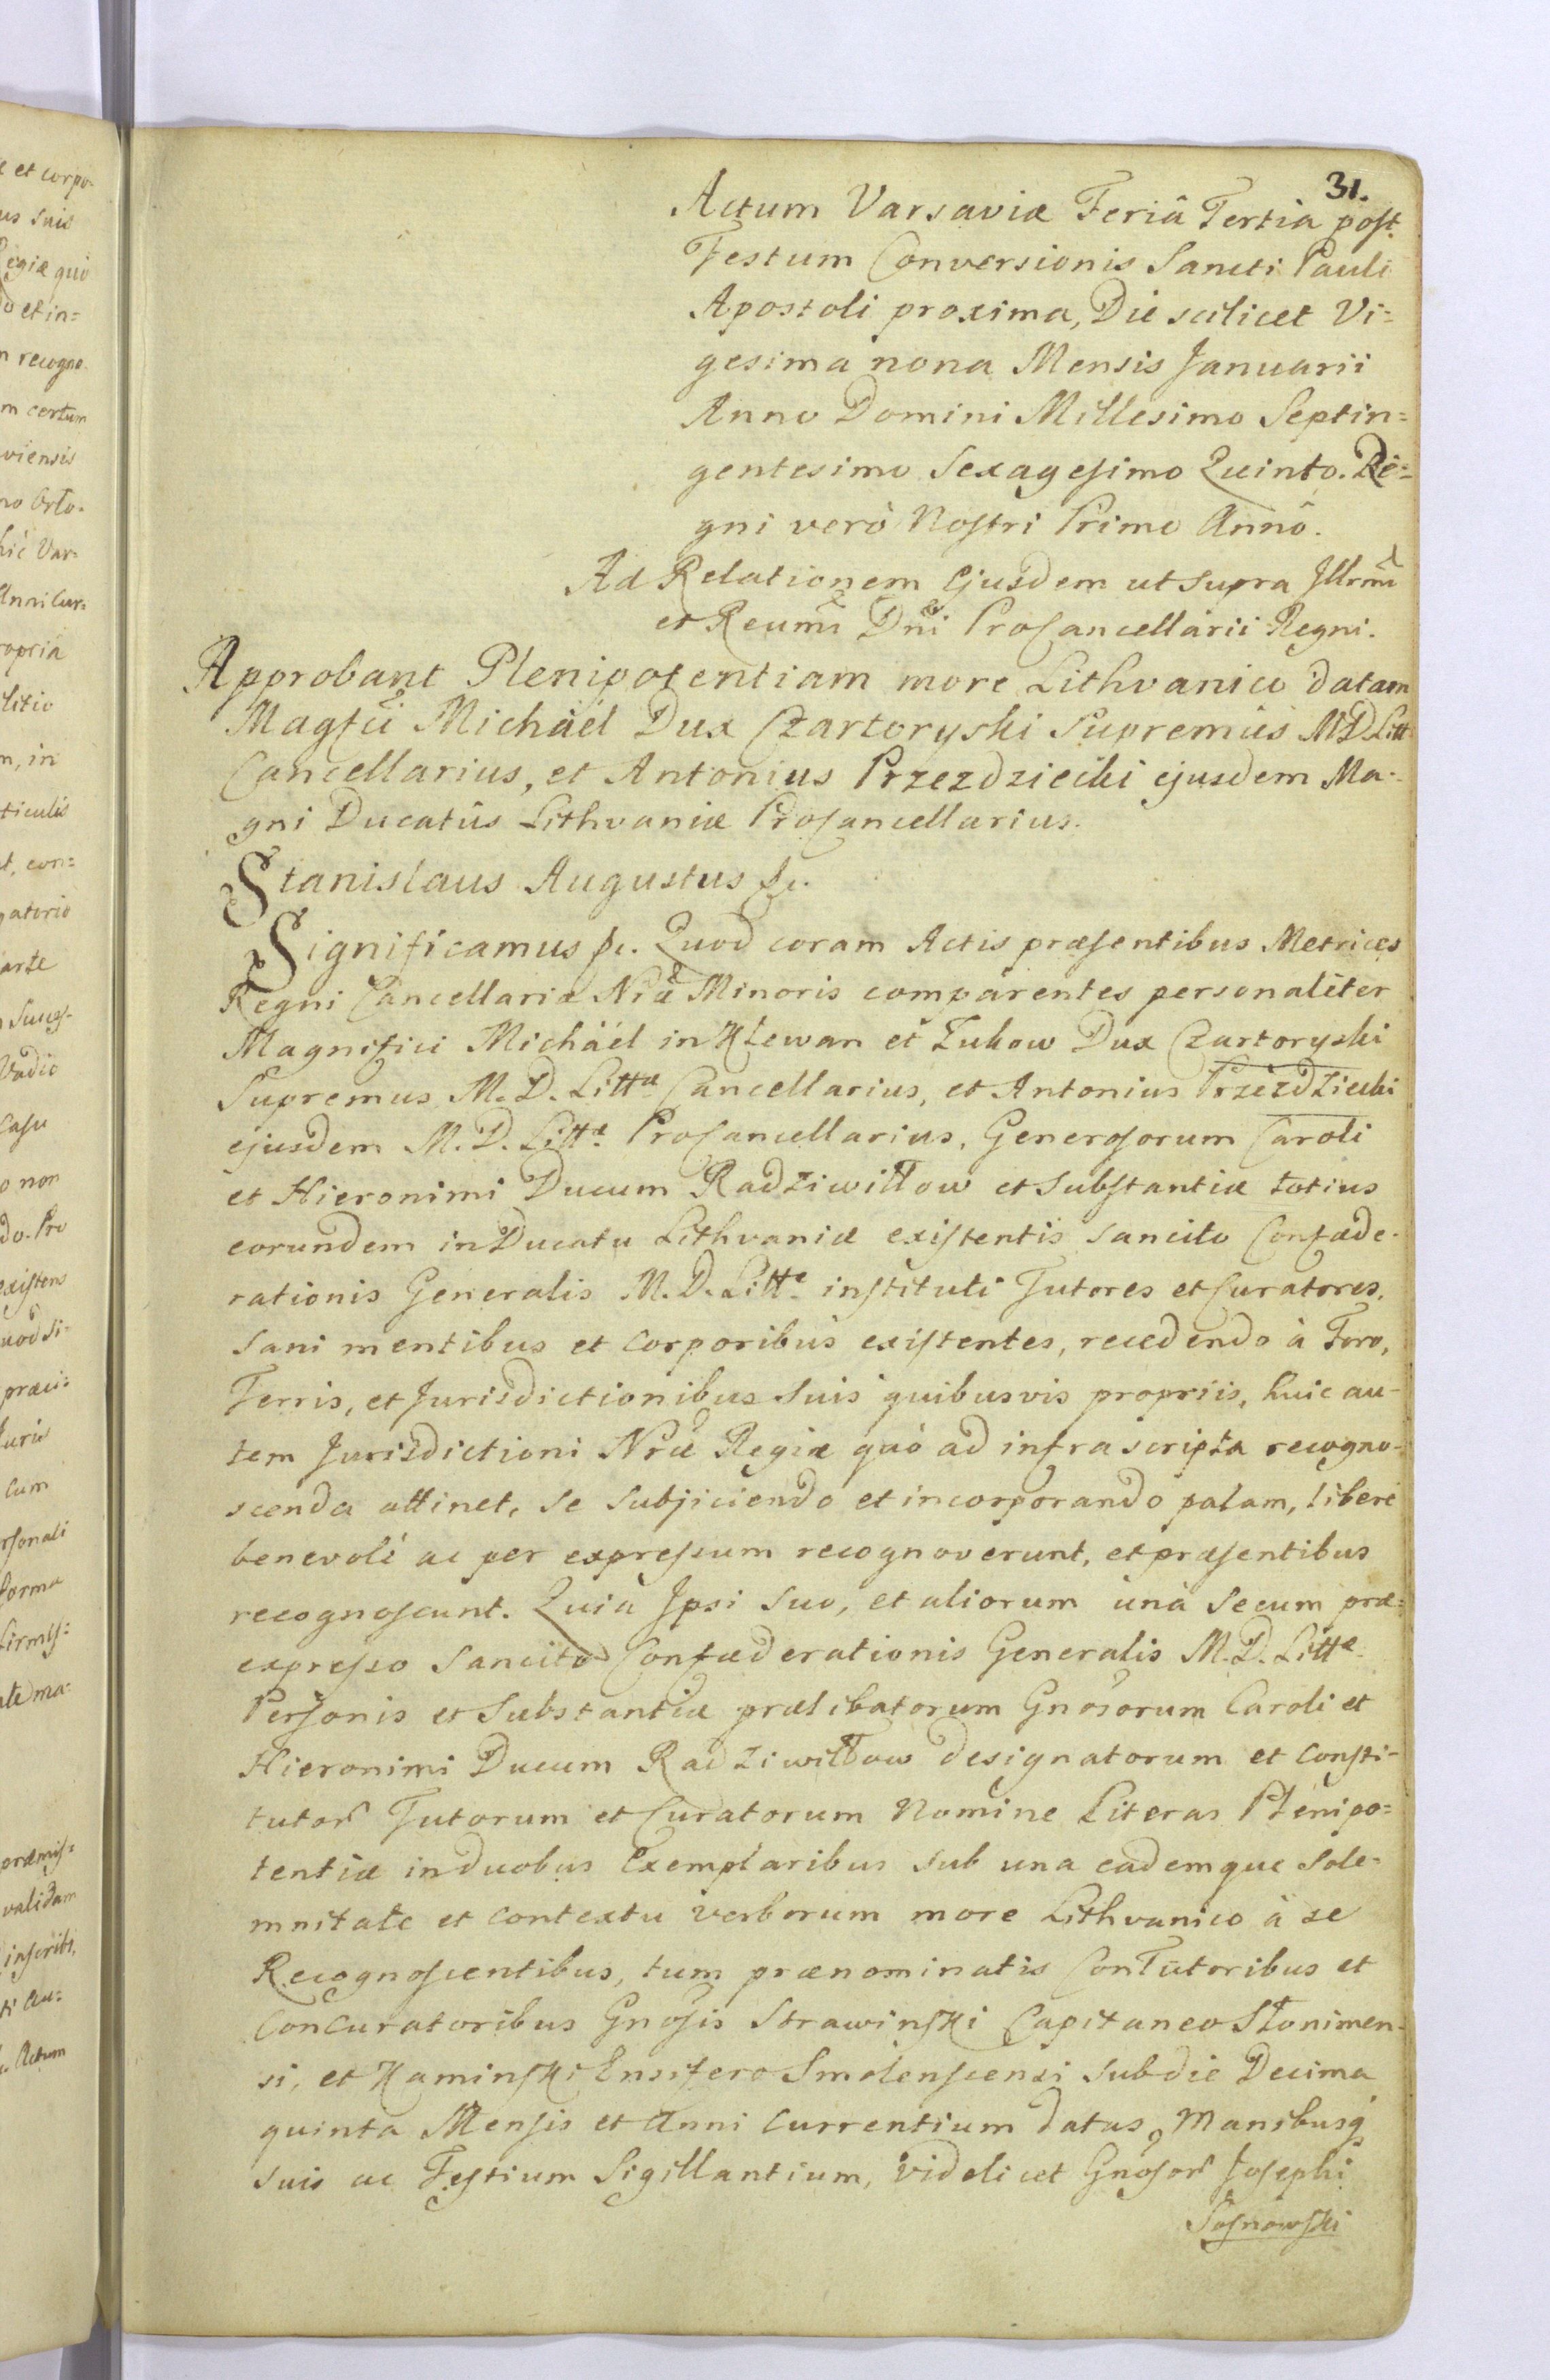 31.
Actum Varsaviæ Feriâ Tertia post
Festum Conversionis Sancti Pauli
Apostoli proxima, Die scilicet Vi=
gesima nona Mensis Januarii
Anno Domini Millesimo Septin=
gentesimo Sexagesimo Quinto. Re=
gni verò Nostri Primo Annô.
Ad Relationem Ejusdem ut supra Illrmi
et Reumi Dni ProCancellarii Regni.
Approbant Plenipotentiam more Lithvanico datam
Magfci Michäél Dux Czartoryski Supremus M.D. Litt
Cancellarius, et Antonius Przezdziecki ejusdem Ma-
gni Ducatûs Lithvaniæ ProCancellarius.
Stanislaus Augustus &c.
Significamus &c. Quod coram Actis præsentibus Metrices
Regni Cancellariæ Nræ Minoris comparentes personaliter
Magnifici Michäél in Klewan et Zukow Dux Czartoryski
Supremus M. D. Littæ Cancellarius, et Antonius Przezdziecki
ejusdem M. D. Littæ ProCancellarius, Generosorum Caroli
et Hieronimi Ducum Radziwiłłow et Substantiæ totius
eorundem in Ducatu Lithvaniæ existentis Sancito Confæde-
rationis Generalis M. D. Littæ instituti Tutores et Curatores,
Sani mentibus et Corporibus existentes, recedendo à Foro,
Terris, et Jurisdictionibus Suis quibusvis propriis, huic au-
tem Jurisdictioni Nræ Regiæ quò ad infrascripta recogno-
scenda attinet, se subjiciendo et incorporando palam, liberè
benevolè ac per expressum recognoverunt, et præsentibus
recognoscunt. Quia Ipsi Suo, et aliorum unà Secum præ=
expresso Sancito Confæderationis Generalis M. D. Littæ
Personis et Substantiæ prælibatorum Gnosorum Caroli et
Hieronimi Ducum Radziwiłłow designatorum et Consti-
tutor Tutorum et Curatorum Nomine Literas Plenipo=
tentiæ in duobus Exemplaribus sub una eademque Sole-
mnitate et contextu verborum more Lithvanico à se
Recognoscentibus, tum prænominatis ConTutoribus et
ConCuratoribus Gnosis Strawinski Capitaneo Słonimen-
si, et Kaminski Ensifero Smolenscensi sub die Decima
quinta Mensis et Anni Currentium datas, Manibusq
suis ac Testium Sigillantium, videlicet Gnosor Josephi
Sosnowski